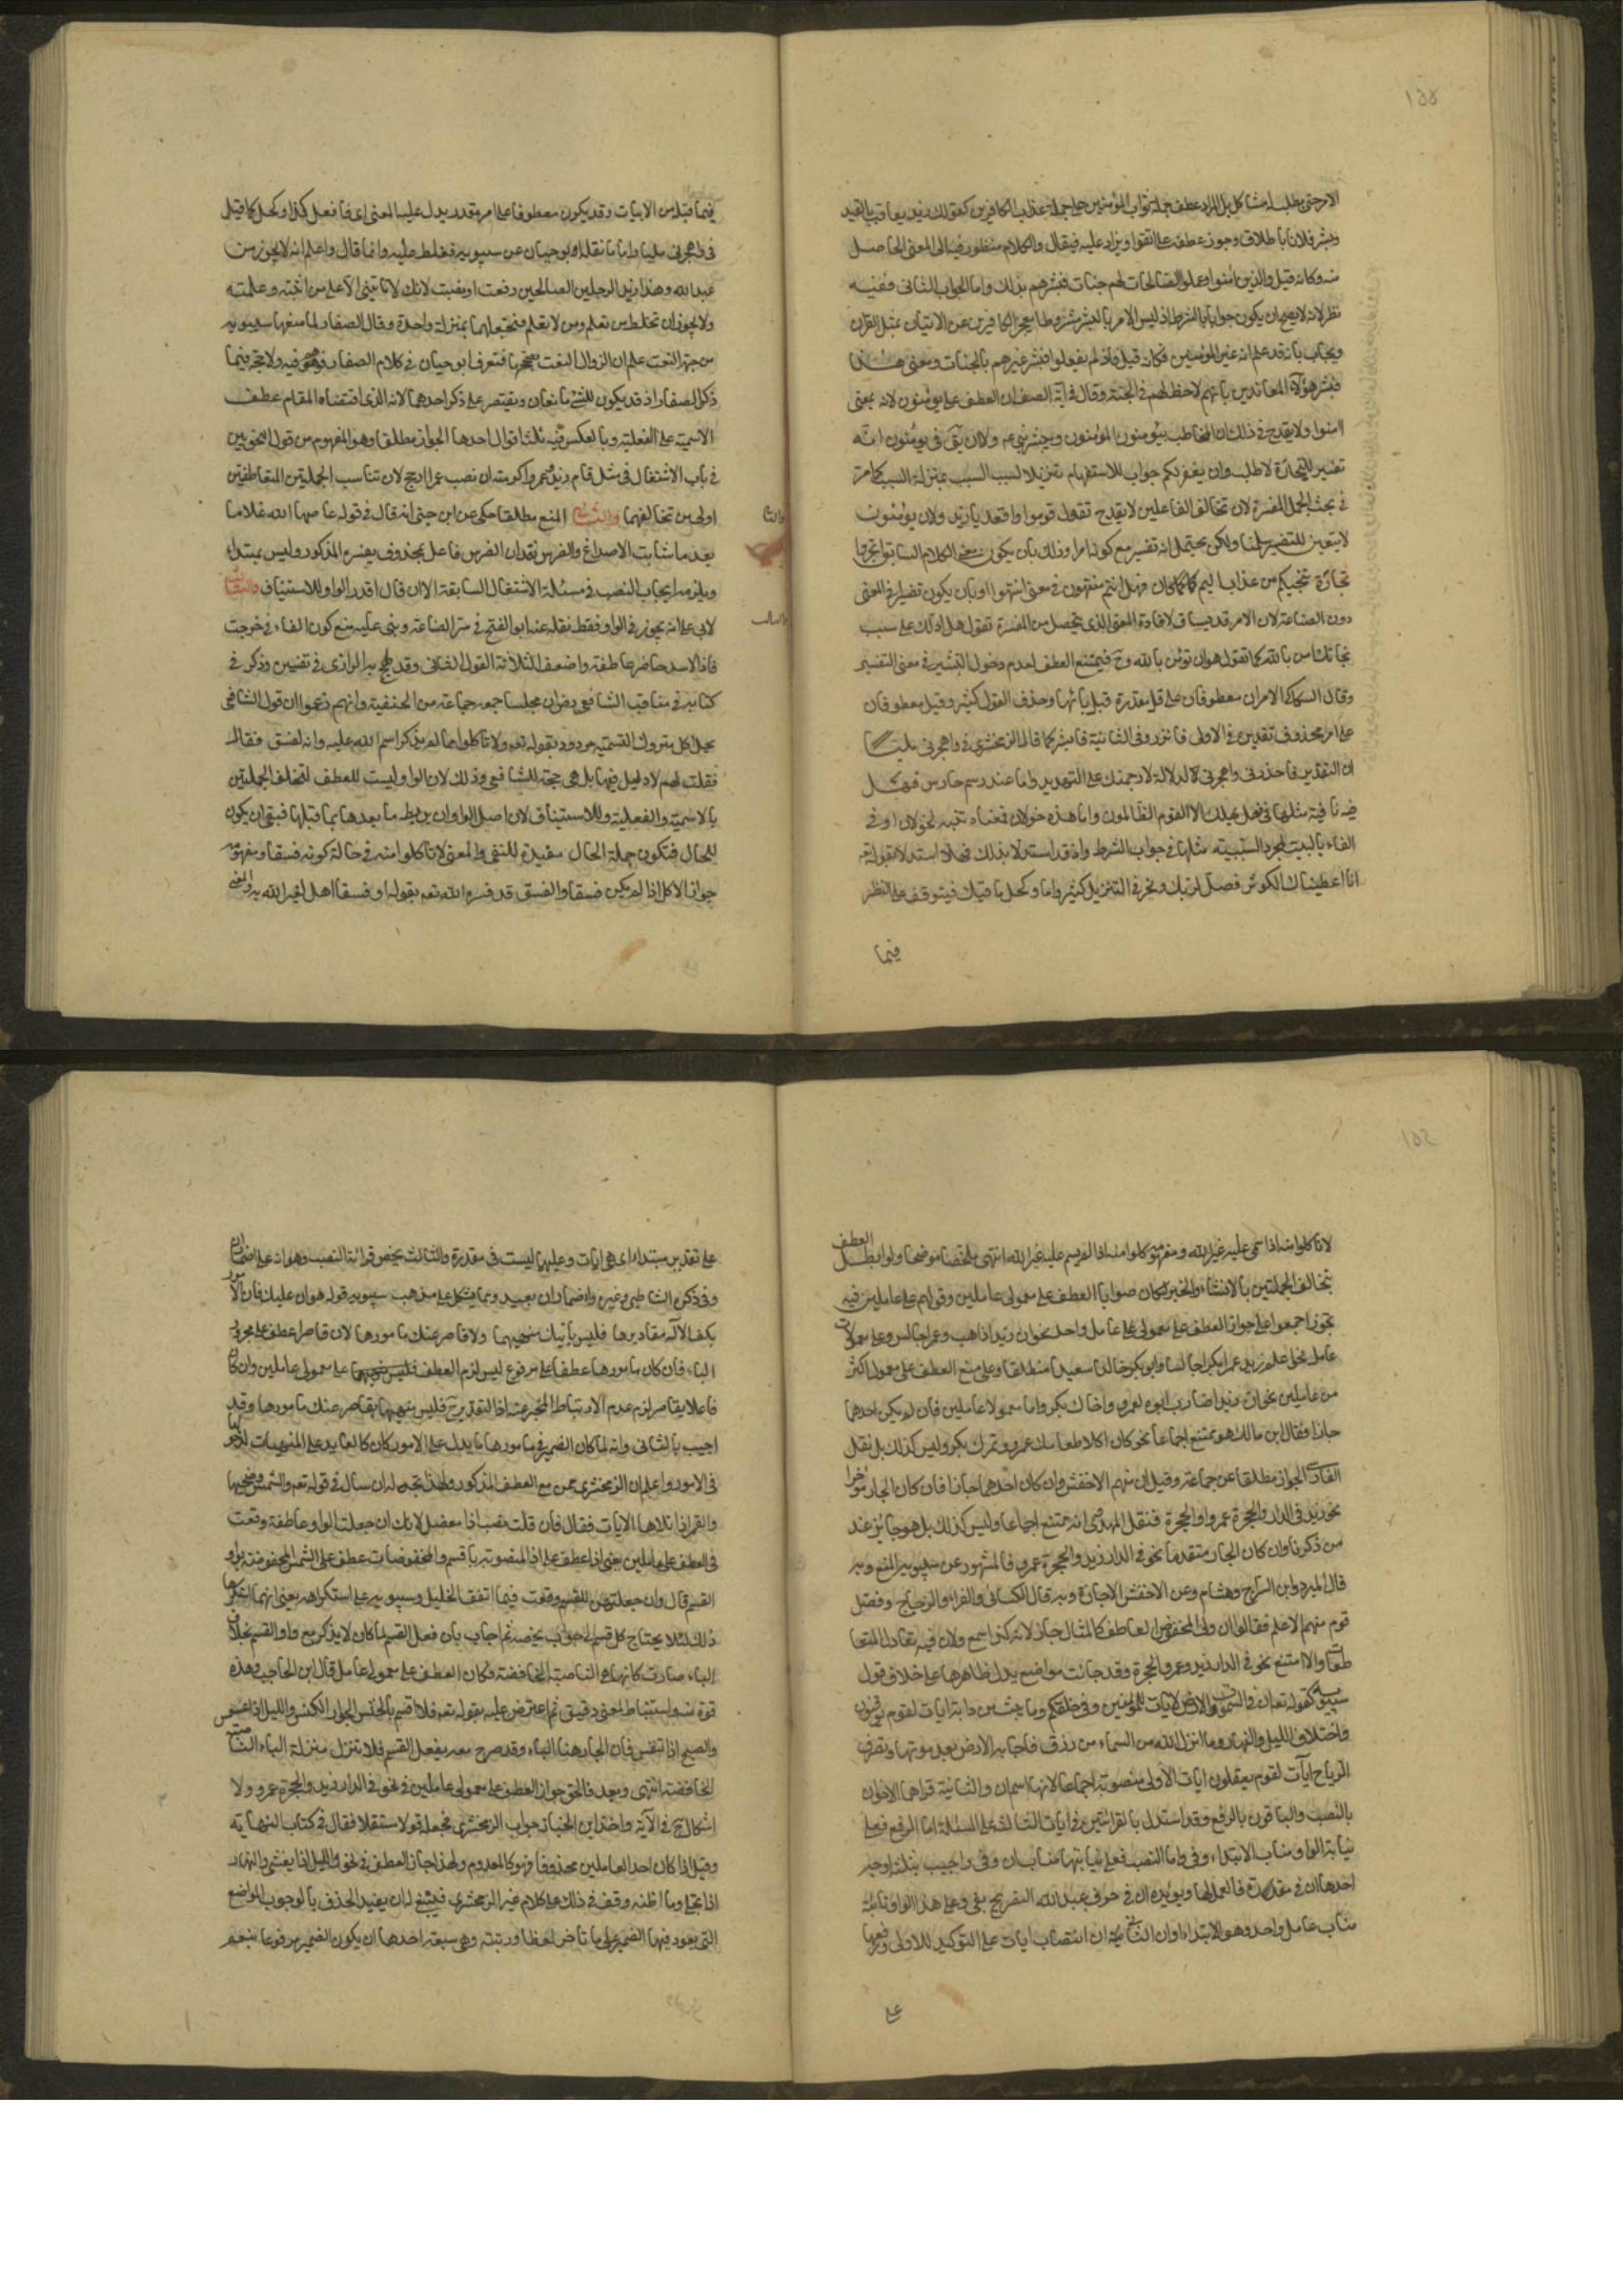 ١٥٥
الامر حتى يطلب له مشاكل بل المراد عطف جملة ثواب المؤمنين على جملة عذاب الكافرين كقولك زيد يعاقب بالقيد
وبشر فلانا باطلاق وجوز عطفه على اتقوا ويزاد عليه فيقال والكلام منظور فيه الى المعنى الحاصل
منه وكانه قيل والذين امنوا وعملوا الصالحات لهم جنات فبشرهم بذلك واما الجواب الثاني ففيه
نظر لانه لا يصح ان يكون جوابا بالشرط اذ ليس الامر بالتبشير مشروطا بعجز الكافرين عن الاتيان بمثل القران
ويجاب بانه قد علم انه غير المؤمنين فكانه قيل فاذ لم يفعلوا فبشر غيرهم بالجنات ومعنى هذا
فبشر هؤلاء المعاندين بانهم لا حظ لهم في الجنة وقال في آية الصف ان العطف على يؤمنون لانه بمعنى
امنوا ولا يقدح في ذلك ان المخاطب بيؤمنون المؤمنون وببشر النبي عم ولا ان يق في يؤمنون انه
تفسير للتجارة لا طلب وان يغفر لكم جواب للاستفهام تنزيلا لسبب السبب بمنزلة السبب كما مر
في بحث الجمل المفسرة لان تخالف الفاعلين لا يقدح تقول قوموا واقعد يا زيد ولان يؤمنون
لا يتعين للتفسير سلمنا ولكن يحتمل انه تفسير مع كونه امرا وذلك بان يكون معنى الكلام السابق اتجروا
تجارة تنجيكم من عذاب اليم كما كان فهل انتم منتهون في معنى انتهوا او بان يكون تفسيرا في المعنى
دون الصناعة لان الامر قد يساق لافادة المعنى الذي يتحصل من المفسرة تقول هل ادلك على سبب
نجاتك امن بالله كما تقول هو ان تؤمن بالله وح فيمتنع العطف لعدم دخول التبشير في معنى التفسير
وقال السكاكي الامران معطوفان على قل مقدرة قبل يا ايها وحذف القول كثير وقيل معطوفان
على امر محذوف تقديره في الاولى فانذر وفي الثانية فابشر كما قال الزمخشري في واهجرني مليا
ان التقدير فاحذرني واهجرني لدلالة لارجمنك على التهديد واما عند رسم دارس فهل
فيه نافية مثلها في فهل يهلك الا القوم الظالمون واما هذه خولان فمعناه تنبه لخولان او في
الفاء بالبيت لمجرد السببية مثلها في جواب الشرط واذ قد استدلا بذلك فهلا استدلا بقوله تع
انا اعطيناك الكوثر فصل لربك ونحر في التنزيل كثير واما وكحل ماقيك فيتوقف على النظر
فيما
فيما قبله من الابيات وقد يكون معطوفا على امر مقدر يدل عليه المعنى اي فافعل كذا وكحل كما قيل
في واهجرني مليا واما ما نقله ابو حيان عن سيبويه فغلط عليه وانما قال واعلم انه لا يجوز من
عبد الله وهذا زيد الرجلين الصالحين رفعت او نصبت لانك لا تثني الا على من اثبته وعلمته
ولا يجوز ان تخلط من تعلم ومن لا تعلم فتجعلهما بمنزلة واحدة وقال الصفار لما منعها سيبويه
من جهة النعت علم ان الزوال النعت يصححها فتصرف ابو حيان في كلام الصفار فوهم فيه ولا حجة فيما
ذكر الصفار اذ قد يكون للشيء مانعان ويقتصر على ذكر احدهما لانه الذي اقتضاه المقام عطف
الاسمية على الفعلية وبالعكس فيه ثلثة اقوال احدها الجواز مطلقا وهو المفهوم من قول النحويين
في باب الاشتغال في مثل قام زيد وعمروا اكرمته ان نصب عمرا ارجح لان تناسب الجملتين المتعاطفتين
اولى من تخالفهما والثاني المنع مطلقا حكي عن ابن جني انه قال في قوله عاضها الله غلاما
والثاني
بعد ما شابت الاصداغ والضرس نقد ان الضرس فاعل بمحذوف يفسره المذكور وليس بمبتداء
ويلزمه ايجاب النصب في مسئلة الاشتغال السابقة الا ان قال اقدر الواو للاستيناف والثالث
لابي علي انه يجوز في الواو فقط نقله عنه ابو الفتح في سر الصناعة وبنى عليه منع كون الفاء في خرجت
والثالث
فاذا الاسد حاضر عاطفة واضعف الثلاثة القول الثاني وقد لهج به الرازي في تفسيره وذكر في
كتابه في مناقب الشافعي رض ان مجلسا جمعه جماعة من الحنفية وانهم زعموا ان قول الشافعي
بحل اكل متروك التسمية مردود بقوله تعه ولا تاكلوا مما لم يذكر اسم الله عليه وانه لفسق فقال
فقلت لهم لا دليل فيها بل هي حجة للشافعي وذلك لان الواو ليست للعطف لتخالف الجملتين
بالاسمية والفعلية ولا للاستيناف لان اصل الواو ان يربط ما بعدها بما قبلها فبقي ان يكون
للحال فتكون جملة الحال مفيدة للنهي والمعنى لا تاكلوا منه في حالة كونه فسقا ومفهومه
جواز الاكل اذا لم يكن فسقا والفسق قد فسره الله تعه بقوله او فسقا اهل لغير الله به والمعنى
١٥٦
لا تاكلوا منه اذا سمي عليه غير الله ومفهومه كلوا منه اذا لم يسم عليه غير الله انتهى ملخصا موضحا ولو ابطل العطف
بتخالف الجملتين بالانشاء والخبر لكان صوابا العطف على معمولي عاملين وقولهم على عاملين فيه
تجوز اجمعوا على جواز العطف على معمولي عامل واحد نحو ان زيدا ذاهب وعمرا جالس وعلى معمولات
عامل نحو اعلم زيد عمرا بكرا جالسا وابو بكر خالدا سعيدا منطلقا وعلى منع العطف على معمول اكثر
من عاملين نحو ان زيدا ضارب ابوه لعمرو واخاك بكر واما معمولا عاملين فان لم يكن احدهما
جارا فقال ابن مالك هو ممتنع اجماعا نحو كان اكلا طعامك عمرو وتمرك بكر وليس كذلك بل نقل
الفارسي الجواز مطلقا عن جماعة وقيل ان منهم الاخفش وان كان احدهما جارا فان كان الجار مؤخرا
نحو زيد في الدار والحجرة عمرو او الحجرة فنقل المهدوي انه ممتنع اجماعا وليس كذلك بل هو جائز عند
من ذكرنا وان كان الجار متقدما نحو في الدار زيد والحجرة عمرو فالمشهور عن سيبويه المنع وبه
قال المبرد وابن السراج وهشام وعن الاخفش الاجازة وبه قال الكسائي والفراء والزجاج وفصل
قوم منهم الاعلم فقالوا ان ولي المخفوض العاطف كالمثال جاز لانه كذا سمع ولان فيه تعادل المتعا
طفات والا امتنع نحو في الدار زيد وعمرو الحجرة وقد جاءت مواضع يدل ظاهرها على خلاف قول
سيبويه كقوله تعه ان في السموات والارض لايات للمؤمنين وفي خلقكم وما يبث من دابة ايات لقوم يوقنون
واختلاف الليل والنهار وما انزل الله من السماء من رزق فاحيا به الارض بعد موتها وتصريف
الرياح آيات لقوم يعقلون ايات الاولى منصوبة اجماعا لانها اسم ان والثانية قراها الاخوان
بالنصب والباقون بالرفع وقد استدل بالقرائتين في ايات الثالثة على المسئلة اما الرفع فعلى
نيابة الواو مناب الابتداء وفي واما النصب فعلى نيابتها مناب ان وفي واجيب بثلثة اوجه
احدها ان في مقدرة فالعمل لها ويؤيده ان في حرف عبد الله التصريح بفي وعلى هذا الواو نائبة
مناب عامل واحد وهو الابتداء او ان الثاني ان انتصاب ايات على التوكيد للاولى ورفعها
على
على تقدير مبتداء اي هي ايات وعليهما ليست في مقدرة والثالث يخص قرائة النصب وهو انه على اضمار ان
وفي ذكره الشاطبي وغيره واضمار ان بعيد ومما يشكل على مذهب سيبويه قوله هون عليك فان الامور
بكف الاله مقاديرها فليس باتيك منهيها ولا قاصر عنك مامورها لان قاصر عطف على مجرور
الباء فان كان مامورها عطفا على مرفوع ليس لزم العطف على معمولي عاملين وان كان
فاعلا بقاصر لزم عدم الارتباط بالمخبر عنه اذ التقدير ح فليس منهيها بقاصر عنك مامورها وقد
اجيب بالثاني وانه لما كان الضمير في مامورها عائدا على الامور كان كالعائد على المنهيات لدخولها
في الامور واعلم ان الزمخشري ممن منع العطف المذكور ولهذا اتجه له ان سال في قوله تعه والشمس وضحيها
والقمر اذا تلاها الايات فقال فان قلت نصب اذا معضل لانك ان جعلت الواو عاطفة وقعت
في العطف على عاملين يعني اذا عطف على اذا المنصوبة باقسم والمخفوضات عطف على الشمس المخفوضة بواو
القسم قال وان جعلتهن للقسم وقعت فيما اتفق الخليل وسيبويه على استكراهه يعني انهما استكرها
ذلك لئلا يحتاج كل قسم الى جواب يخصه ثم اجاب بان فعل القسم لما كان لا يذكر مع واو القسم بخلاف
الباء صارت كانها هي الناصبة الخافضة فكان العطف على معمولي عامل قال ابن الحاجب وهذه
قوة منه واستنباط لمعنى دقيق ثم اعترض عليه بقوله تعه فلا اقسم بالخنس الجوار الكنس والليل اذا عسعس
والصبح اذا تنفس فان الجار هنا الباء وقد صرح معه بفعل القسم فلا تنزل منزلة الباء الناصبة
الخافضة انتهى وبعد فالحق جواز العطف على معمولي عاملين في نحو في الدار زيد والحجرة عمرو ولا
اشكال ح في الآية واخذ ابن الخباز جواب الزمخشري فجعله قولا مستقلا فقال في كتاب النهاية
وقيل اذا كان احد العاملين محذوفا فهو كالمعدوم ولهذا جاز العطف في نحو والليل اذا يغشى والنهار
اذا تجلى وما اظنه وقف في ذلك على كلام غير الزمخشري فينبغي له ان يقيد الحذف بالوجوب المواضع
التي يعود فيها الضمير على ما تاخر لفظا ورتبة وهي سبعة احدها ان يكون الضمير مرفوعا بنعم